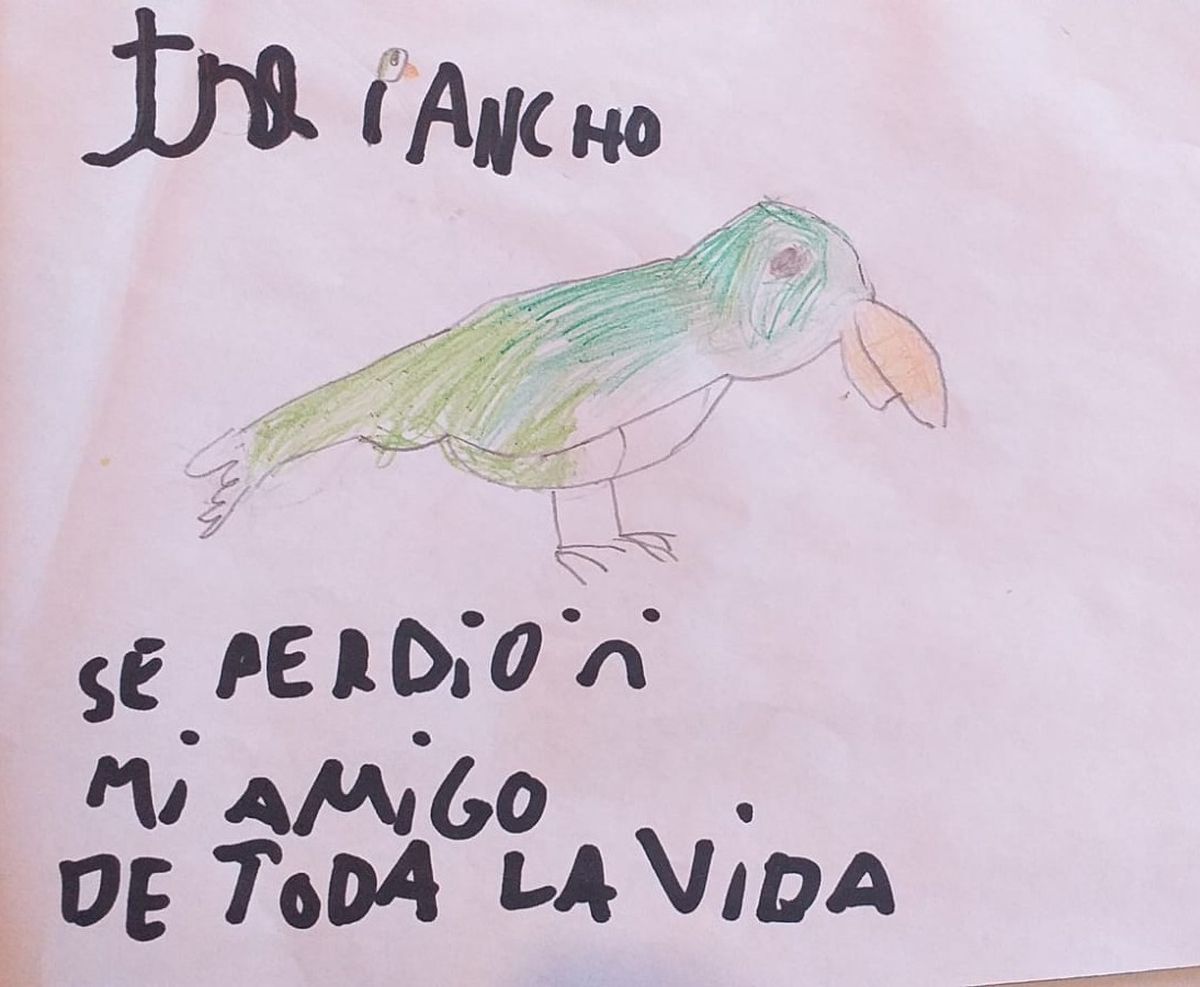 PANCHO
SE PERDiO
Mi AMiGO
DE ToDA LA ViDA